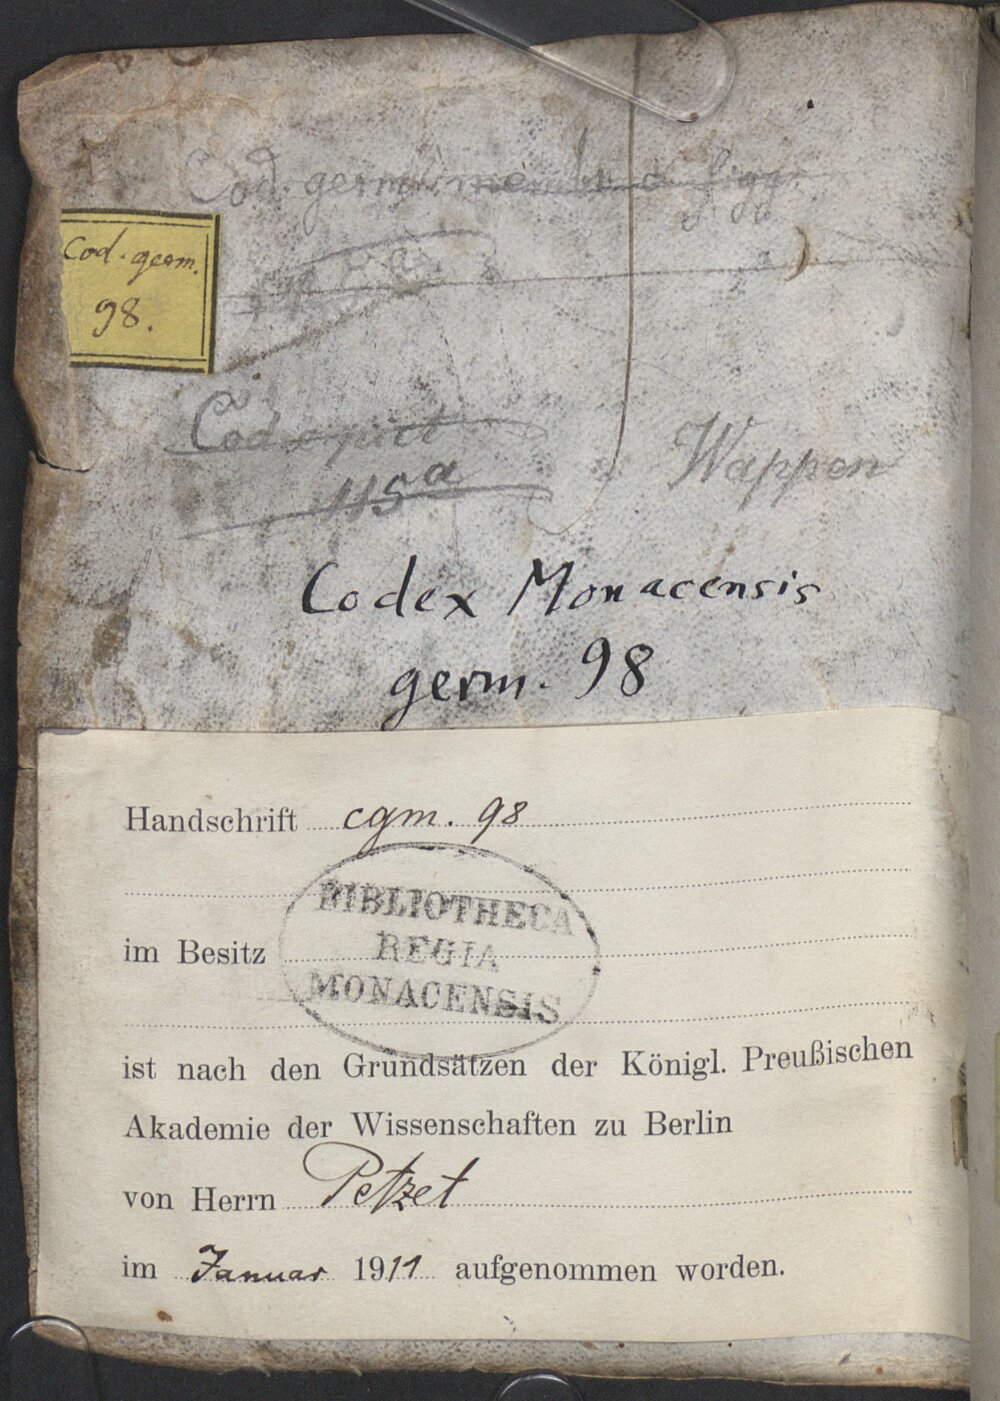 Cod. germ. membr. c. figg.
Cod. germ.
98.
Cod. c. pict
115a
Wappen
Codex Monacensis
germ. 98
Handschrift cgm. 98
BIBLIOTHECA
REGIA
MONACENSIS
im Besitz
ist nach den Grundsätzen der Königl. Preußischen
Akademie der Wissenschaften zu Berlin
von Herrn Petzet
im Januar 1911 aufgenommen worden.